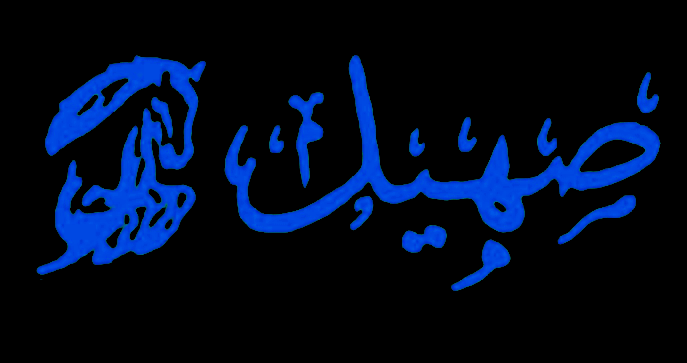 صهيل